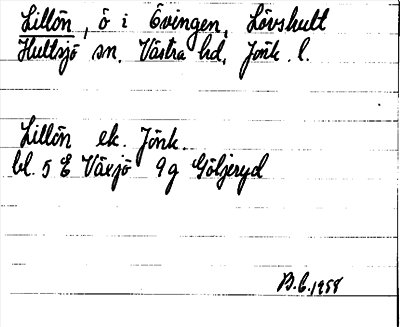 Lillön, ö i Övingen, Lövshult
Hultsjö sn. Västra hd, Jönk. l.
Lillön ek. Jönk.
bl. 5 E Växjö 9g Göljeryd
B.G. 1958